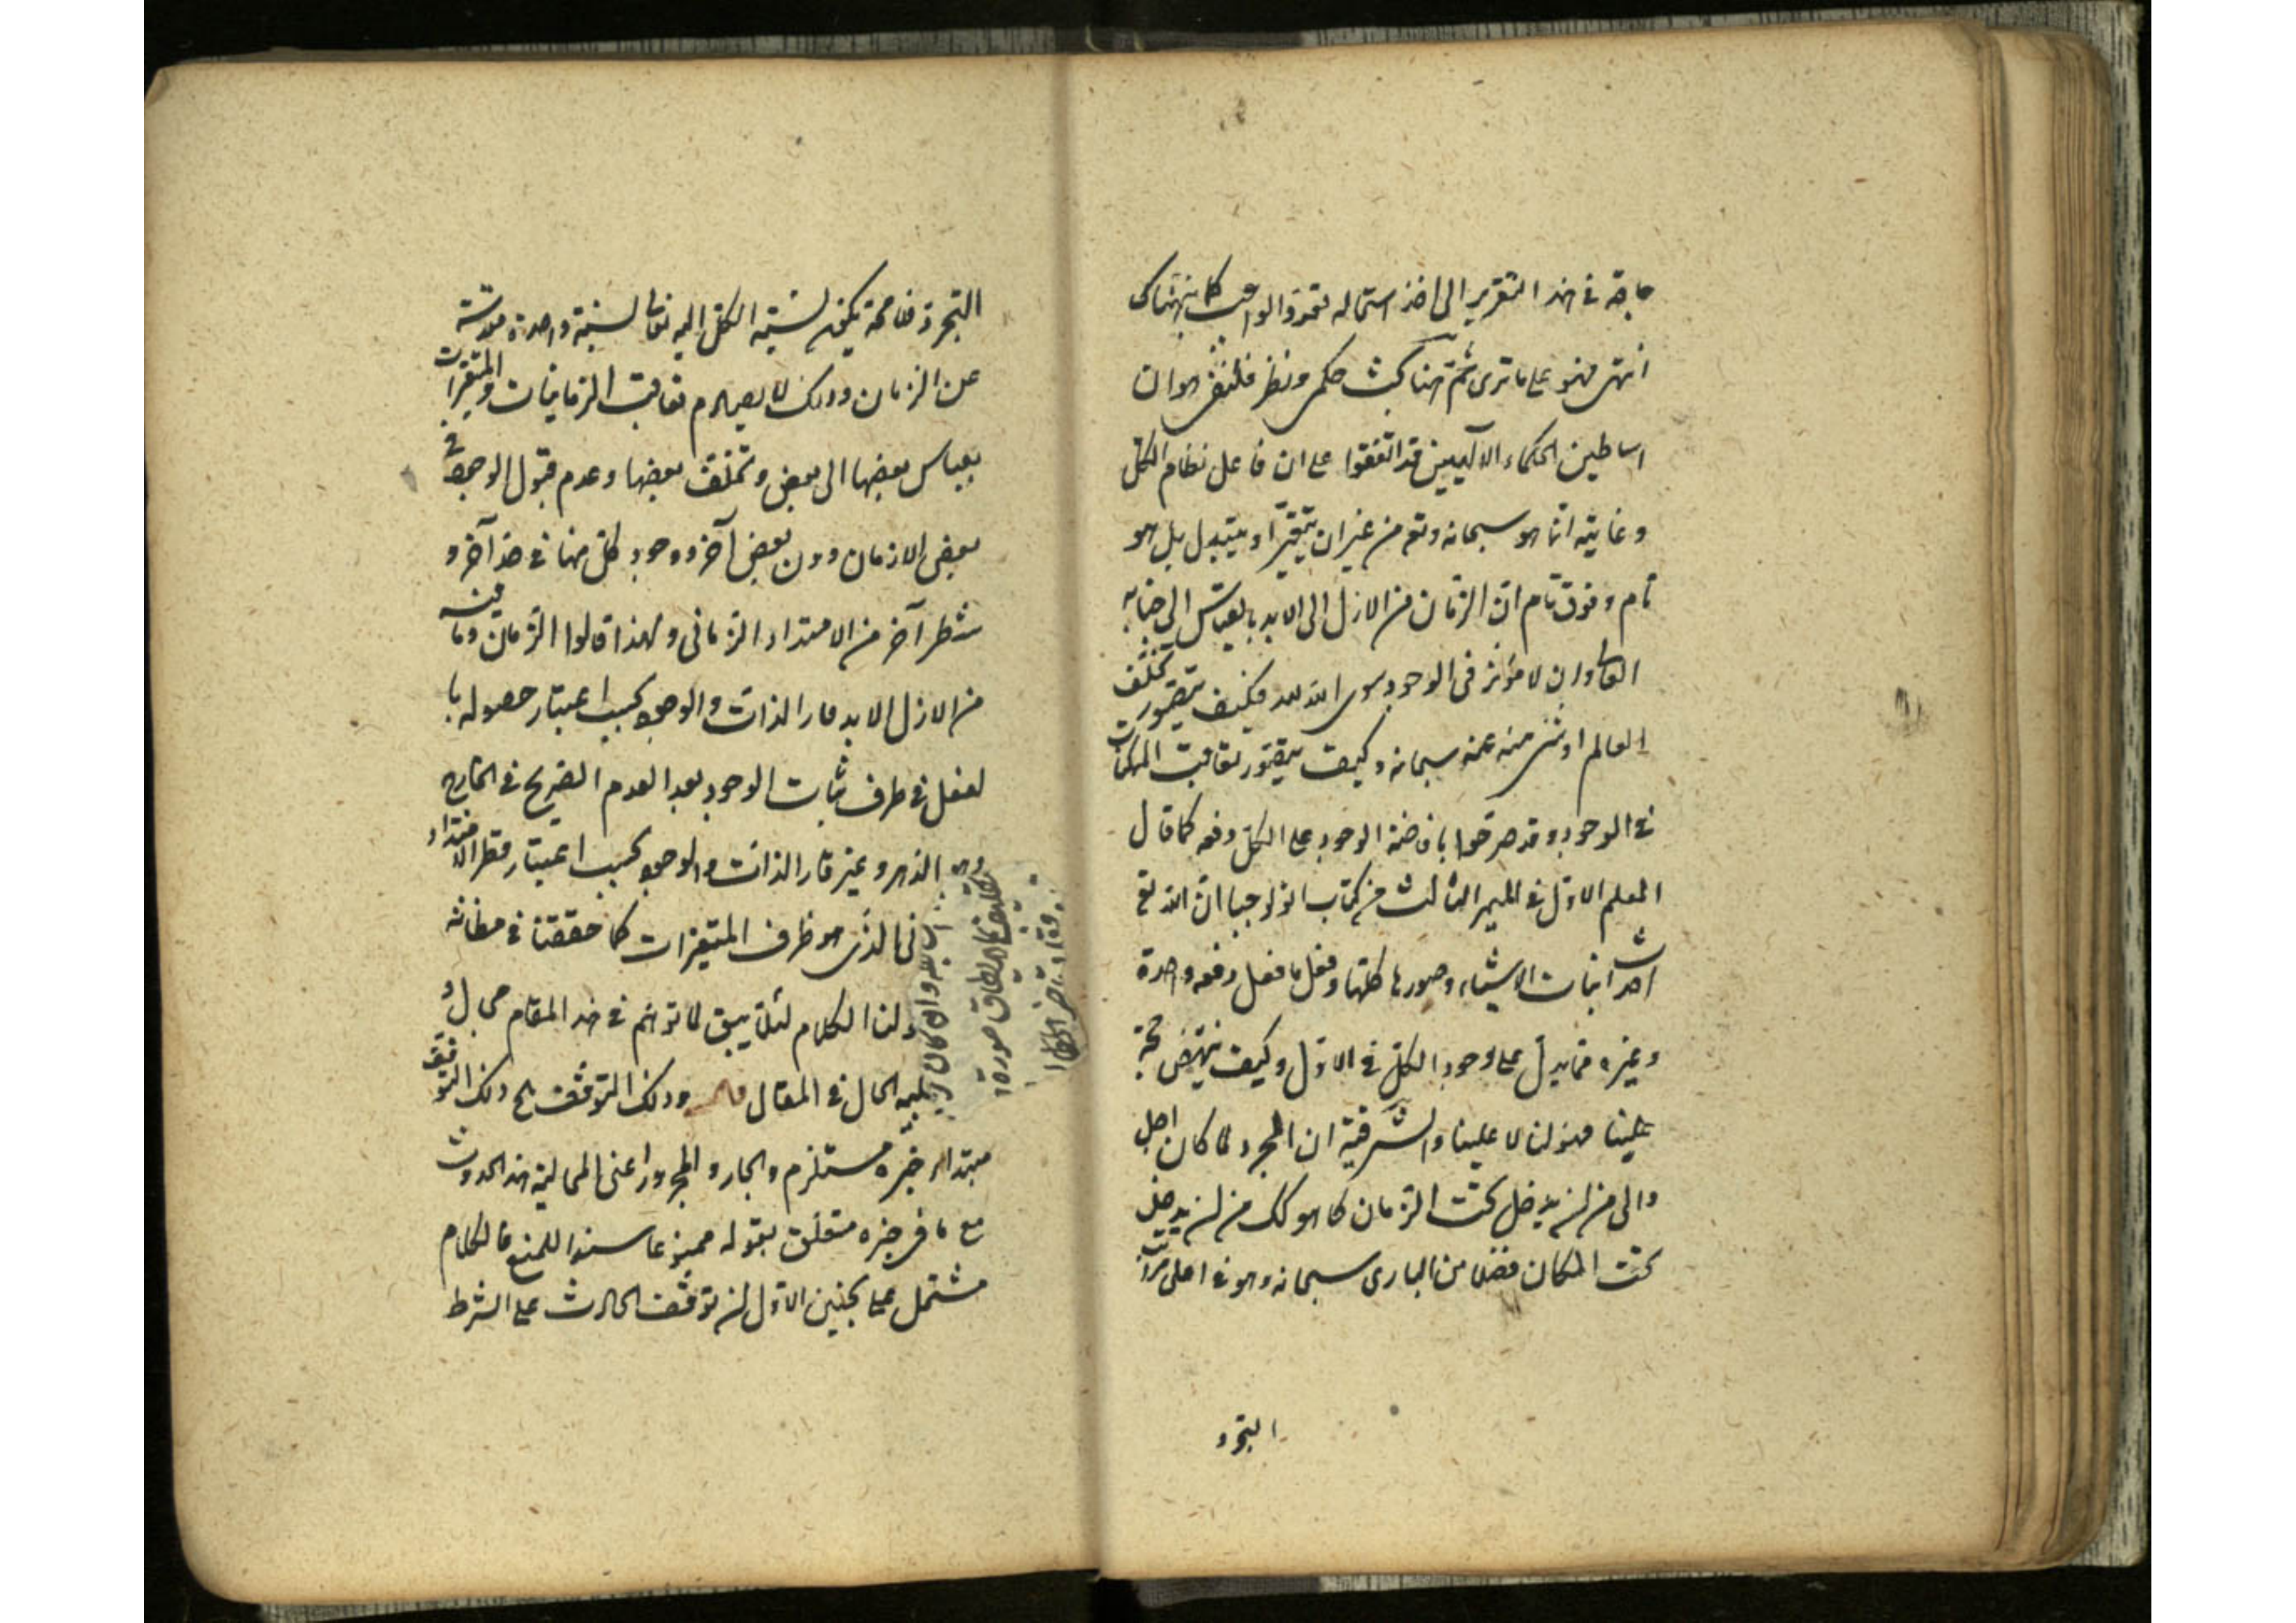 حاجة فى هذا التقرير الى اخذ استحاله تعدد الواجب كما ينهتناك
انتهى فهو على ما ترى ثم هنا بحث حكمى ونظر فلسفى هو ان
اساطين الحكماء الالهيين قد اتفقوا على ان فاعل نظام الكل
وغايته انما هو سبحانه وتع من غير ان يتغير او يتبدل بل هو
تام وفوق تام ان الزمان من الازل الى الابد بالقياس الى جنابه
العالى وان لا مؤثر فى الوجود سوى الله فكيف يتصور تخلف
العالم او شئ منه عنه سبحانه وكيف يتصور تعاقب الممكنات
فى الوجود وقد صرحوا بافاضة الوجود على الكل دفعه كما قال
المعلم الاول فى الميمر الثالث من كتاب اثولوجيا ان الله تع
احدث انيات الاشياء وصورها كلها وفعل ما فعل دفعه واحدة
وغيره مما يدل على وجود الكل فى الاول وكيف ينتهض حجة
علينا فهو لنا لا علينا والسر فيه ان المجرد لما كان اجل
والى من ان يدخل تحت الزمان كما هو كك من ان يدخل
تحت المكان فضلا من البارى سبحانه وهو فى اعلى مراتب
التجرد
التجرد فلا محة يكون نسبته الكل اليه تعالى نسبة واحدة مقدسة
عن الزمان وذلك لا يصادم تعاقب الزمانيات والمتغيرات
بقياس بعضها الى بعض وتخلف بعضها وعدم قبول الوجود فى
بعض الازمان دون بعض آخر ووجود كل منها فى حد آخر و
شطر آخر من الامتداد الزمانى ولهذا قالوا الزمان وما فيه
من الازل الابد قار الذات والوجود بحسب اعتبار حصوله با
لفعل فى ظرف ثبات الوجود بعد العدم الصريح فى الخارج
وهو الدهر وغير قار الذات والوجود بحسب اعتبار قطر الامتداد
نى الذى هو ظرف المتغيرات كما حققنا فى مظانه
ولنا الكلام لئلا يبق للتوهم فى هذا المقام مجال و
الحال فى المقال وذلك التوقف ذلك التوقف
مبتدا خبره مستلزم والجار والمجرور اعنى المحالية هذا الحدوث
مع ما فى حيزه متعلق بقوله مميز عا سندا للمنع فالكلام
مشتمل على بحثين الاول ان توقف الحادث على الشرط